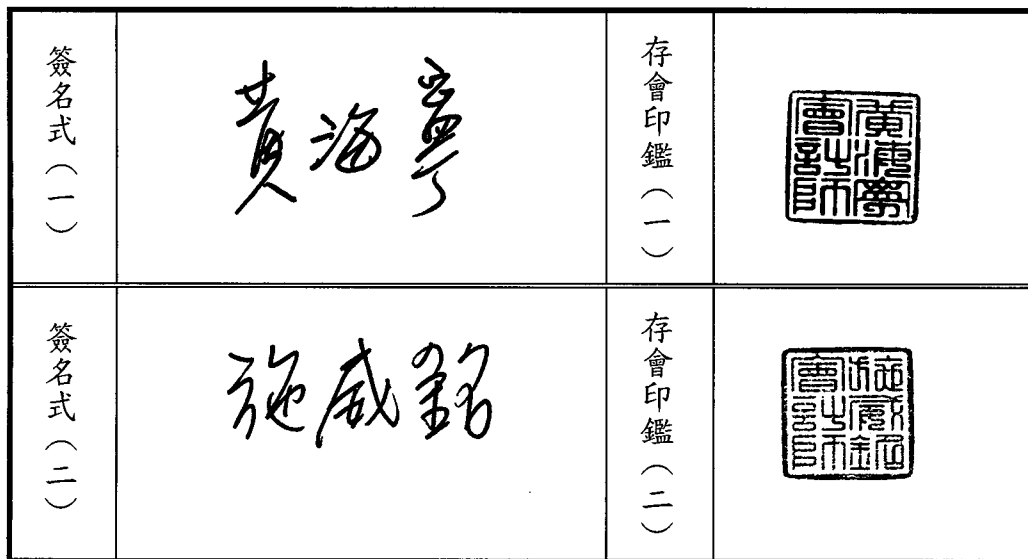 簽名式(一)
黃海寧
存會印鑑(一)
黃海寧會計師
簽名式(二)
施威銘
存會印鑑(二)
施威銘會計師